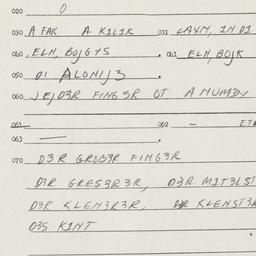 020 0
030 A FAK A KILIK 031 LAXM, IN DI
040 ELN, BOJGYS . 041 ELN, BOJK
050 DI ALONIJ3
060 JEJD3R FING3R OT A NUM3N
061 — 062 — ETA
063 — .
070 D3R GRE53R FING3R
D3R GRES3R3R, D3R MIT3LST
D3R KLEN3R3R, D3R KLENST3R
D3S KINT